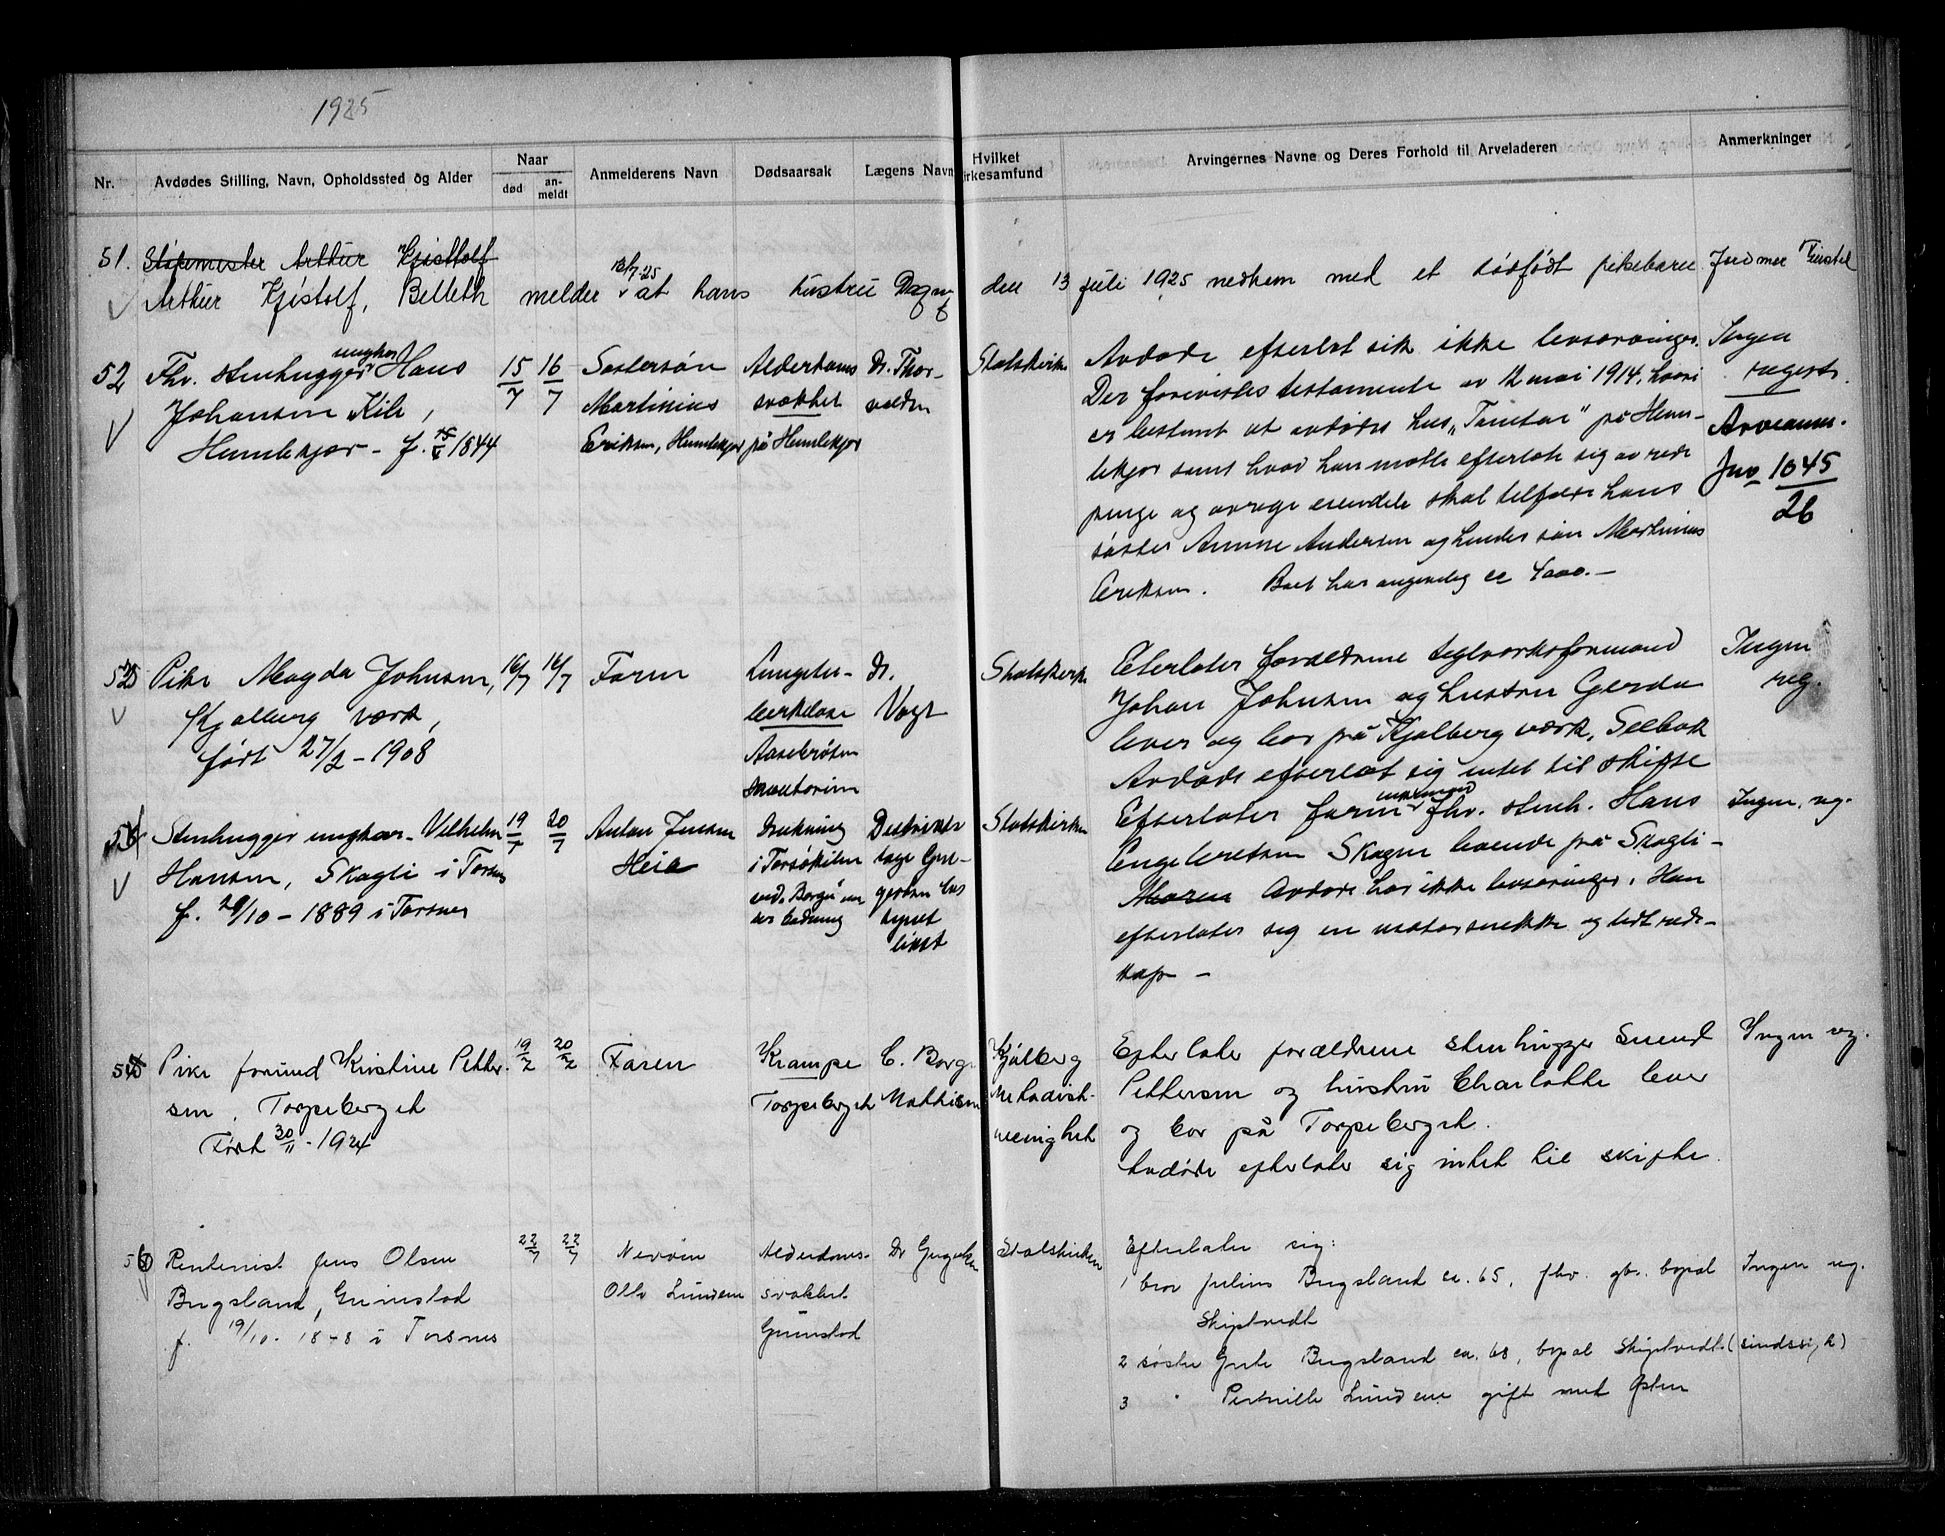 1925
Nr.
Avdødes Stilling, Navn, Opholdssted og Alder
Naar
død
an-
meldt
Anmelderens Navn
Dødsaarsak
Lægens Navn
Hvilket
irkesamfund
Arvingernes Navne og Deres Forhold til Arveladeren
Anmerkninger
51.
Arthur Kjistolf
Arthur Kjistolf, Belleth melder 13/7.25 at hans hustru Dagny den 13 juli 1925 nedkom med et dødfødt pikebarn
52
Fhv. stenhugger ungkar Hans
Johansen Kile,
Humlekjær - f. 1844
15/7
16/7
Søstersøn
Martinius
Eriksen, Humlekjær
Alderdoms
svækket
på Humlekjær
Dr. Thor-
valdsen
Statskirken
Avdøde efterlot sik ikke livsarvinger.
Der forevistes testamente av 12 mai 1914, hvori
er bestemt at avdødes hus på Humle-
kjær samt hvad han måtte efterlate sig av rede
penge og øvrige eiendele skal tilfalde hans
søster Anne Andersen og hendes søn Martinius
Eriksen. Boet har angivelig ca 4000.-
Ingen
registr.
Arveanm.
Jno 1045
26
53
Pike Magda Johnsen,
Kjølberg værk,
født 27/2 - 1908
16/7
16/7
Faren
Lungetu-
berkulose
Aasebråten
sanatorium
Dr.
Vogt
Statskirk
Efterlater forældrene teglverksformand
Johan Johnsen og hustru Gerda
lever og bor på Kjølberg værk, Selbak
Avdøde efterlot sig intet til skifte
Ingen
reg.
54
Stenhugger ungkar Vilhelm
Hansen, Skagli i Torsnes
f. 29/10 - 1889 i Torsnes
19/7
20/7
Anton Jensen
Heie
Drukning
i Torsøkilen
ved Borge un
der badning
Distrikts
læge Grü-
gersen har
synet
liket
Statskirken
Efterlater faren enkemand fhv. stenh. Hans
Engebretsen Skagen boende på Skagli -
Moren Avdøde har ikke livsarvinger. Han
efterlater sig en motorsnekke og lidt red-
skap -
Ingen reg.
55
Pike Kirstine Petter
sen, Torpeberget
Født 30/11 - 1924
19/7
20/7
Faren
Krampe
Torpeberget
C. Borg
Mathisen
Kjølberg
Metodist-
menighet
Efterlater forældrene stenhugger Svend
Pettersen og hustru Charlotte lever
og bor på Torpeberget.
Avdøde efterlater sig intet til skifte.
Ingen reg.
56
Rentenist Jens Olsen
Bugsland, Grimstad
f. 19/10. 18-8 i Torsnes
22/7
22/7
Nevøen
Olb Lundene
Alderdoms-
svækket
Grimstad
Dr
Statskirken
Efterlater sig:
1 bror Julius Bugsland ca. 65, fhv. gbr. bopal
Skiptvedt
2 søster Grete Bugsland ca. 68, bopal Skiptvedt (sindssyk)
3 " Pernille Lundene gift med Østen
Ingen reg.